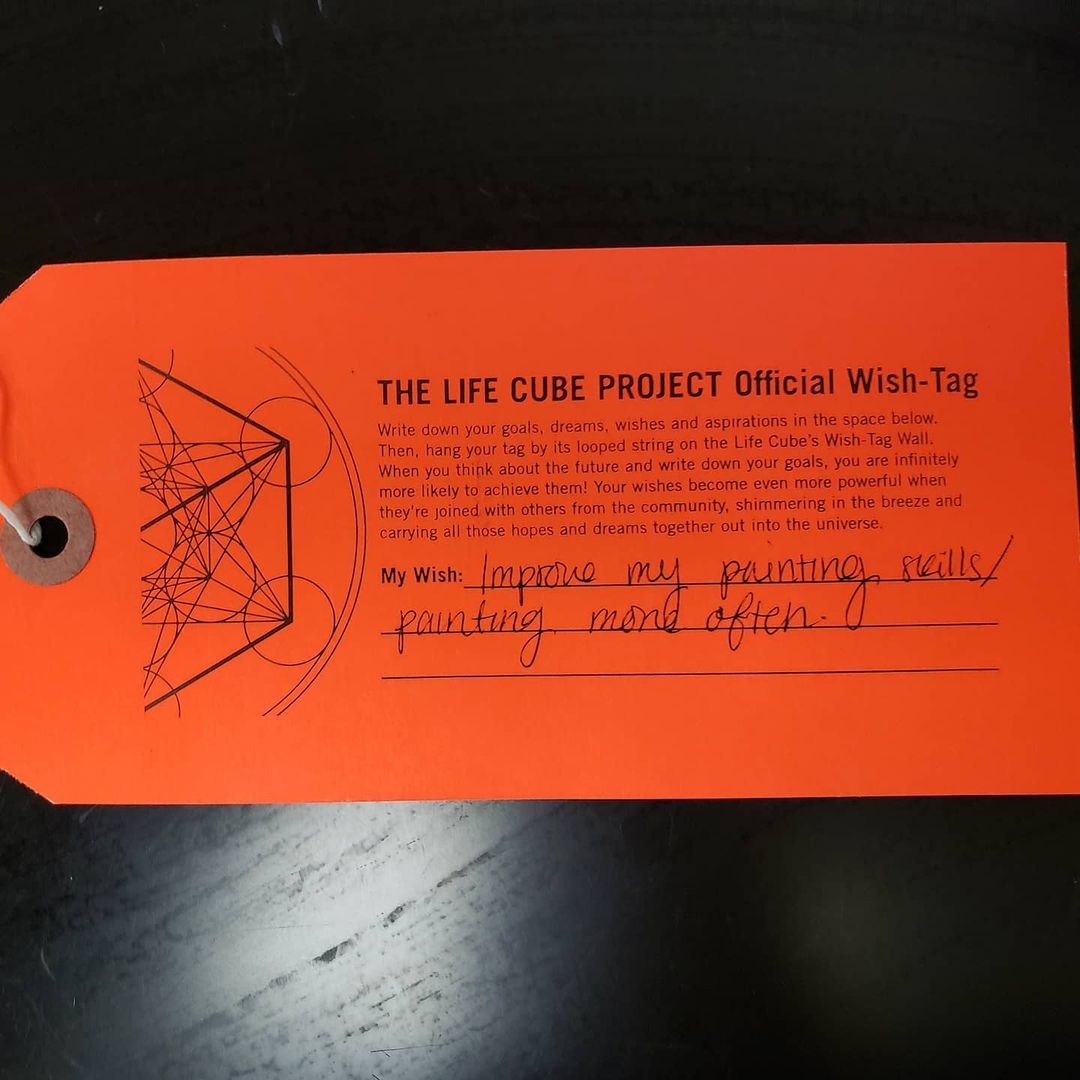 THE LIFE CUBE PROJECT Official Wish-Tag
Write down your goals, dreams, wishes and aspirations in the space below.
Then, hang your tag by its looped string on the Life Cube's Wish-Tag Wall.
When you think about the future and write down your goals, you are infinitely
more likely to achieve them! Your wishes become even more powerful when
they're joined with others from the community, shimmering in the breeze and
carrying all those hopes and dreams together out into the universe.
My Wish: Improve my painting skills/
painting more often.